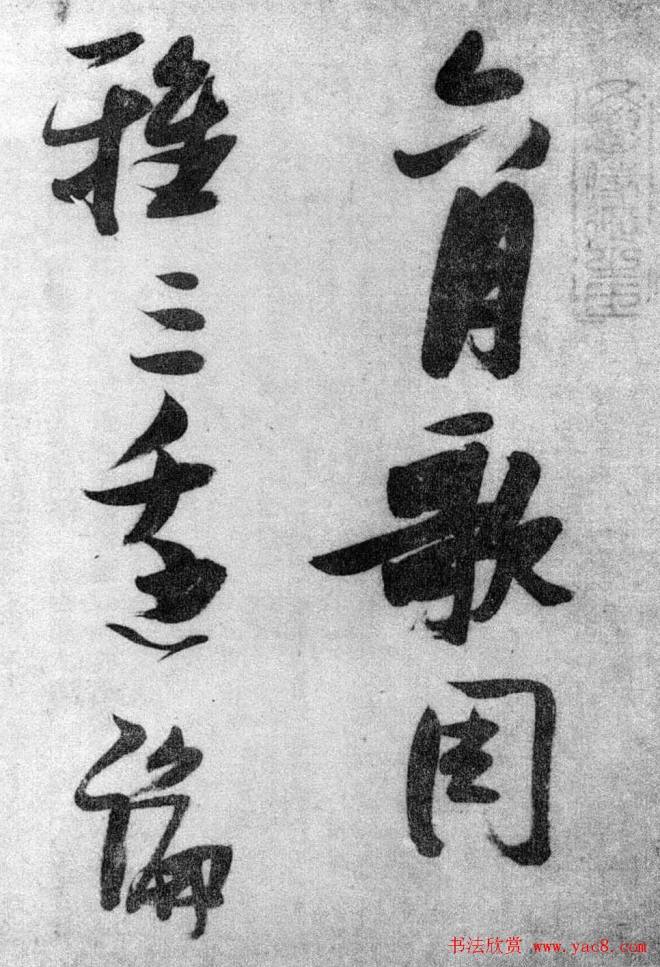 六月歌周
雅三論
书法欣赏 www.yac8.com